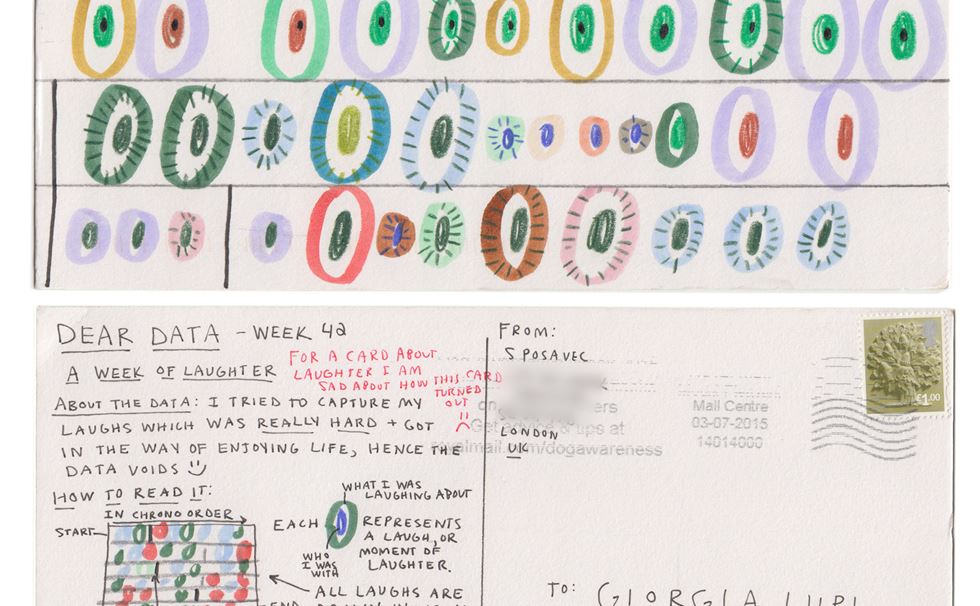 DEAR DATA - WEEK 42
A WEEK OF LAUGHTER
FOR A CARD ABOUT
LAUGHTER I AM
SAD ABOUT HOW THIS CARD
TURNED
OUT
ABOUT THE DATA: I TRIED TO CAPTURE MY
LAUGHS WHICH WAS REALLY HARD + GOT
IN THE WAY OF ENJOYING LIFE, HENCE THE
DATA VOIDS
HOW TO READ IT:
IN CHRONO ORDER
START
WHAT I WAS
LAUGHING ABOUT
EACH
REPRESENTS
A LAUGH, OR
MOMENT OF
LAUGHTER.
WHO
I WAS
WITH
ALL LAUGHS ARE
FROM:
S POSAVEC
LONDON
UK
Get advice & tips at
royalmail.com/dogawareness
Mail Centre
03-07-2015
14014000
£1.00
TO: GIORGIA LUPI